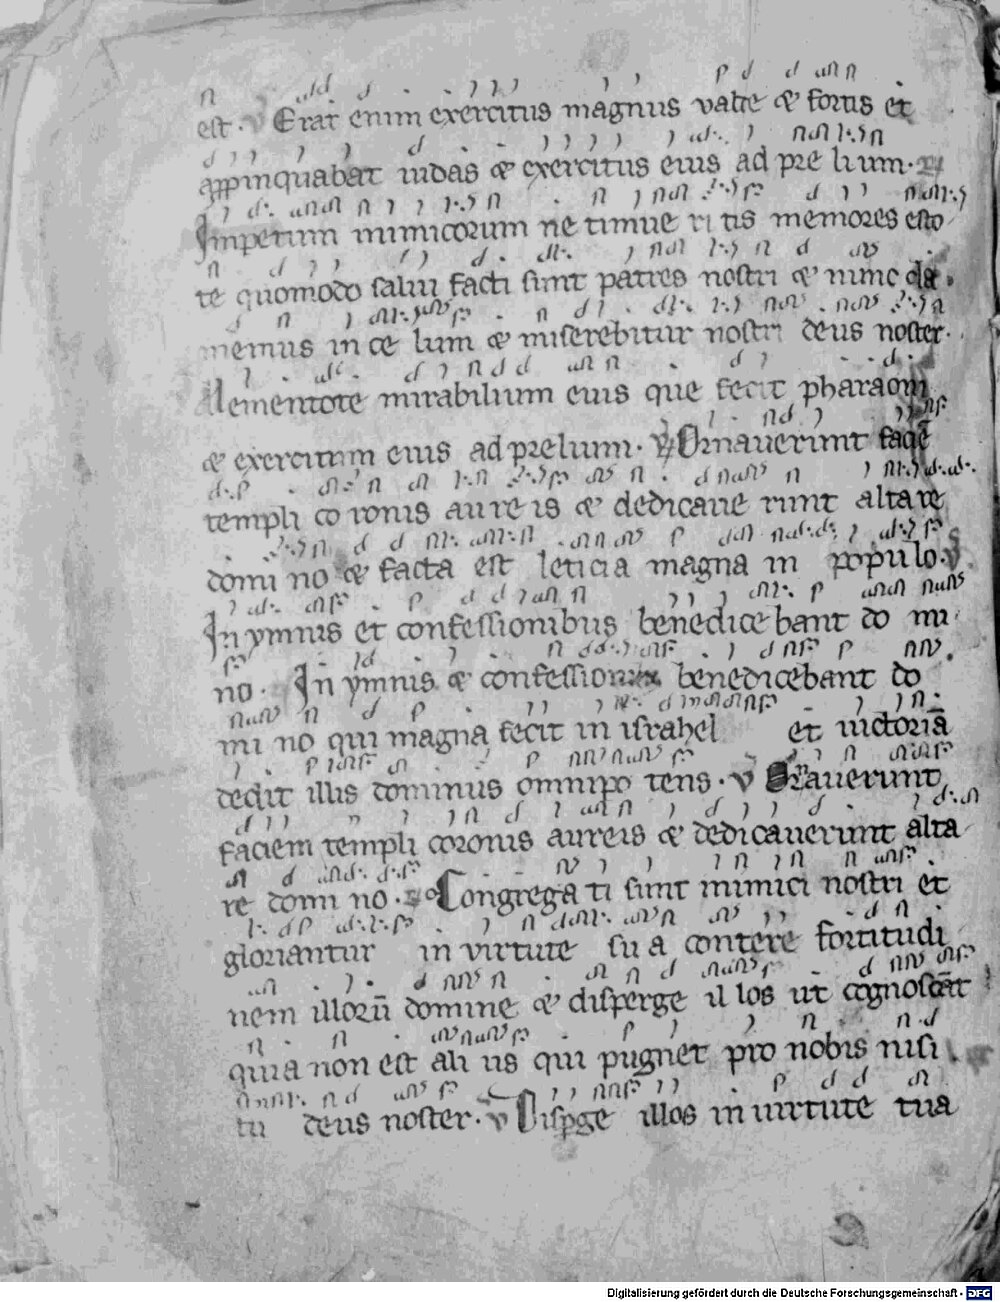 est. V Erat enim exercitus magnus valde & fortis et
appinquabat iudas & exercitus eius ad pre lium.
Impetum inimicorum ne timue ri tis memores esto
te quomodo salui facti sunt patres nostri & nunc cla
memus in ce lum & miserebitur nostri deus noster.
Mementote mirabilium eius que fecit pharaoni
& exercitum eius ad prelium. V Ornauerunt facie
templi co ronis aure is & dedicaue runt altare
domi no & facta est leticia magna in populo. V
In ymnis et confessionibus benedice bant do mi
no. In ymnis & benedicebant do
mi no qui magna fecit in israhel et uictoriā
dedit illis dominus omnipo tens. V Ornauerunt
faciem templi coronis aureis & dedicauerunt alta
re domi no. Congrega ti sunt inimici nostri et
gloriantur in virtute su a contere fortitudi
nem illorū domine & disperge il los ut cognoscāt
quia non est ali us qui pugnet pro nobis nisi
tu deus noster. V Dispge illos in uirtute tua
Digitalisierung gefördert durch die Deutsche Forschungsgemeinschaft - DFG